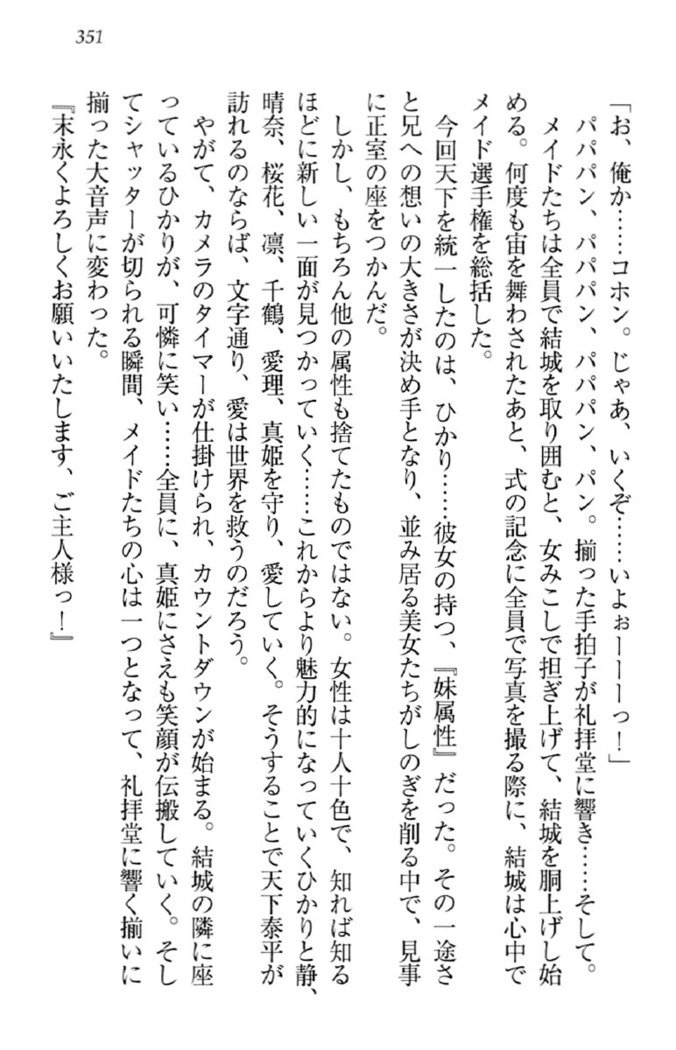 351
「お、俺か……コホン。じゃあ、いくぞ……いよぉーーーっ！」
パパパン、パパパン、パパパン、パン。揃った手拍子が礼拝堂に響き……そして。
メイドたちは全員で結城を取り囲むと、女みこしで担ぎ上げて、結城を胴上げし始
める。何度も宙を舞わされたあと、式の記念に全員で写真を撮る際に、結城は心中で
メイド選手権を総括した。
今回天下を統一したのは、ひかり……彼女の持つ、『妹属性』だった。その一途さ
と兄への想いの大きさが決め手となり、並み居る美女たちがしのぎを削る中で、見事
に正室の座をつかんだ。
しかし、もちろん他の属性も捨てたものではない。女性は十人十色で、知れば知る
ほどに新しい一面が見つかっていく……これからより魅力的になっていくひかりと静、
晴奈、桜花、凛、千鶴、愛理、真姫を守り、愛していく。そうすることで天下泰平が
訪れるのならば、文字通り、愛は世界を救うのだろう。
やがて、カメラのタイマーが仕掛けられ、カウントダウンが始まる。結城の隣に座
っているひかりが、可憐に笑い……全員に、真姫にさえも笑顔が伝搬していく。そし
てシャッターが切られる瞬間、メイドたちの心は一つとなって、礼拝堂に響く揃いに
揃った大音声に変わった。
『末永くよろしくお願いいたします、ご主人様っ！』